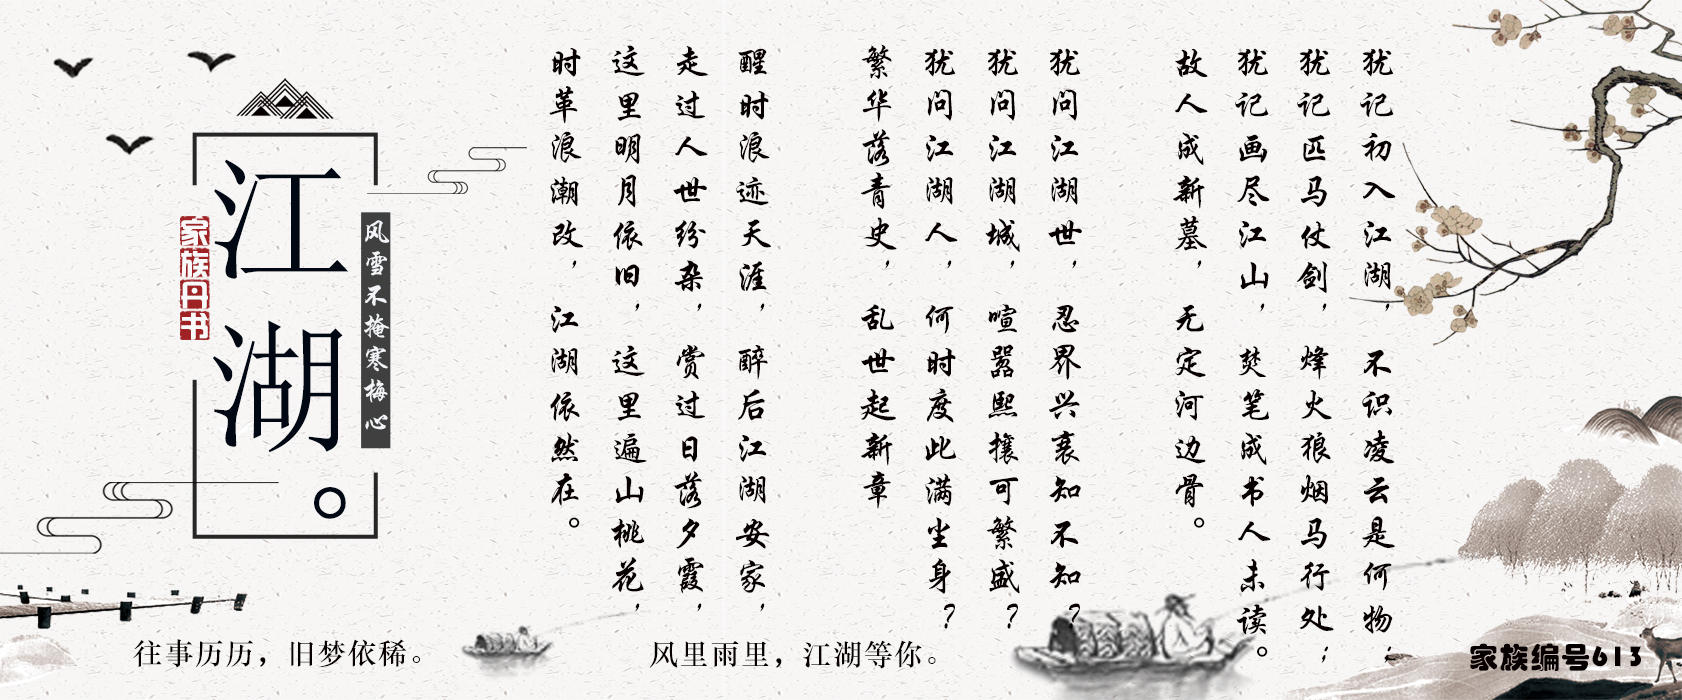 犹记初入江湖，不识凌云是何物；
犹记匹马仗剑，烽火狼烟马行处；
犹记画尽江山，焚笔成书人未读。
故人成新墓，无定河边骨。
犹问江湖世，忍界兴衰知不知？
犹问江湖城，喧嚣熙攘可繁盛？
犹问江湖人，何时度此满尘身？
繁华落青史，乱世起新章
醒时浪迹天涯，醉后江湖安家，
走过人世纷杂，赏过日落夕霞，
这里明月依旧，这里遍山桃花，
时革浪潮改，江湖依然在。
风雪不掩寒梅心
江湖。
家族丹书
往事历历，旧梦依稀。
风里雨里，江湖等你。
家族编号613